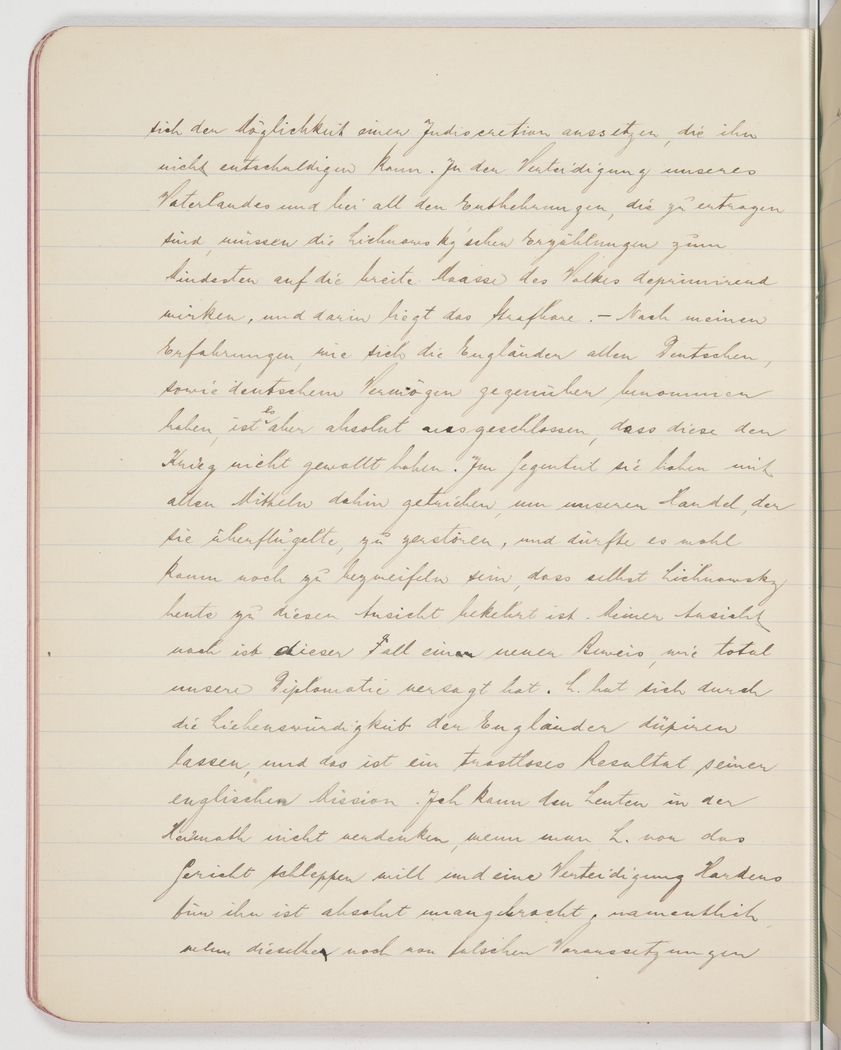 sich der Möglichkeit einer Indiscretion aussetzen, die ihn
nicht entschuldigen kann. In der Verteidigung unseres
Vaterlandes und bei all den Entbehrungen, die zu ertragen
sind, müssen die Lichnowsky'schen Erzählungen zum
Mindesten auf die breite Maasse des Volkes deprimirend
wirken, und darin liegt das Strafbare. – Nach meinen
Erfahrungen, wie sich die Engländer allen Deutschen,
sowie deutschem Vermögen gegenüber benommen
haben, ist es aber absolut ausgeschlossen, dass diese den
Krieg nicht gewollt haben. Im Gegenteil sie haben mit
allen Mitteln dahin getrieben, um unseren Handel, der
sie überflügelte, zu zerstören, und dürfte es wohl
kaum noch zu bezweifeln sein, dass selbst Lichnowsky
heute zu dieser Ansicht bekehrt ist. Meiner Ansicht
nach ist dieser Fall einen neuen Beweis, wie total
unsere Diplomatie versagt hat. L. hat sich durch
die Liebenswürdigkeit der Engländer düpiren
lassen, und das ist ein trostloses Resultat seiner
englischen Mission. Ich kann den Leuten in der
Heimath nicht verdenken, wenn man L. vor das
Gericht schleppen will und eine Verteidigung Hardens
für ihn ist absolut unangebracht, namentlich,
wenn dieselbe noch von falschen Voraussetzungen